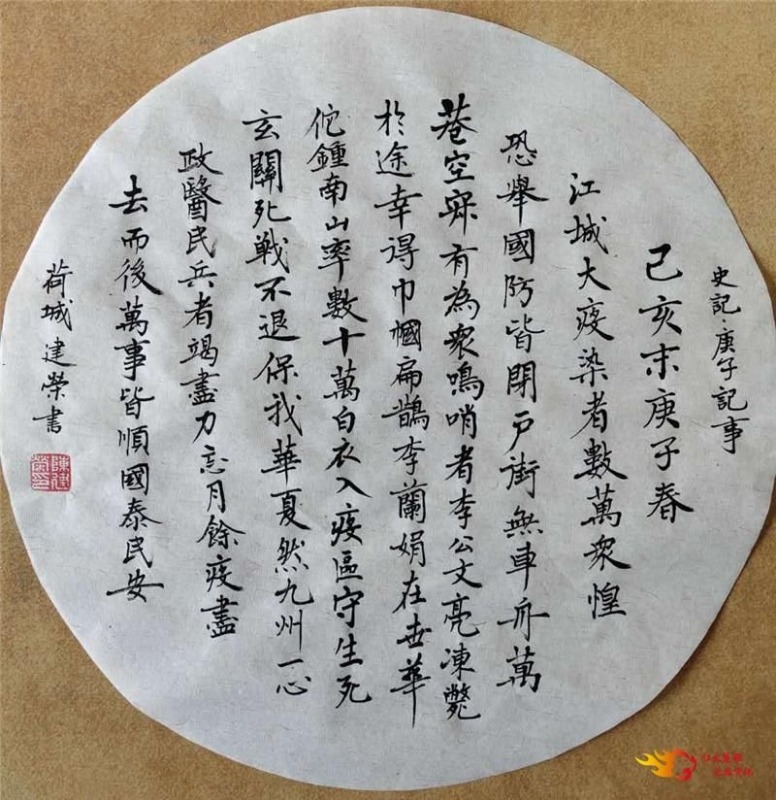 史記·庚午記事
己亥末庚子春
江城大疫染者數萬衆惶
恐舉國防皆閉戶街無車舟萬
巷空寐有為衆鳴哨者李公文亮凍斃
於途幸得巾幗扁鵲李蘭娟在世華
佗鍾南山率數十萬白衣入疫區守生死
玄關死戰不退保我華夏然九州一心
政醫民兵者竭盡力忘月餘疫盡
去而後萬事皆順國泰民安
荷城建榮書
陳建榮印